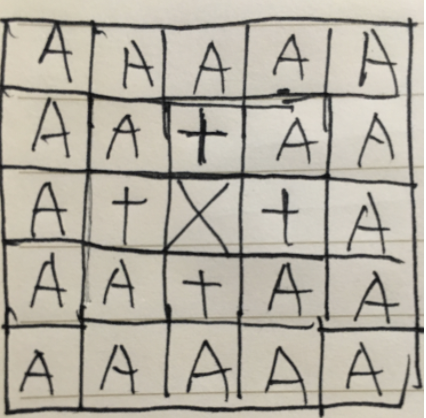 A A A A A
A A + A A
A + X + A
A A + A A
A A A A A